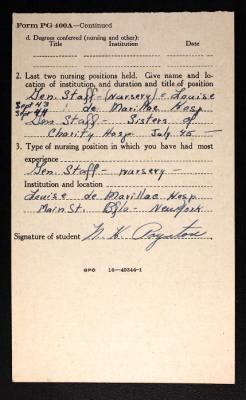 Form PG 400A—Continued
d. Degrees conferred (nursing and other):
Title Institution Date
2. Last two nursing positions held. Give name and lo-
cation of institution, and duration and title of position
Gen. Staff - (Nursery) - Louise
Sept 43 de Marillac Hosp.
Sept 44
Gen Staff - Sisters of
Charity Hosp July 45 —
3. Type of nursing position in which you have had most
experience
Gen. Staff - nursery -
Institution and location
Louise de Marillac Hosp
Main St. Bflo - New York
Signature of student N. K. Poynton
GPO 16—40344-1